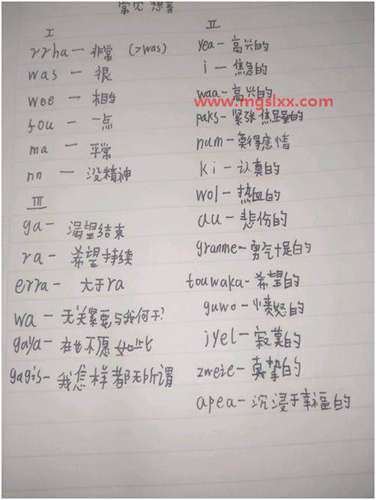 常见想音
I
rrha — 非常 (>was)
was — 很
wee — 相当
fou — 一点
ma — 平常
nn — 没精神
III
ga — 渴望结束
ra — 希望持续
erra — 大于ra
wa — 无关紧要与我何干?
gaya — 在也不愿如此
gagis — 我怎样都无所谓
II
yea — 高兴的
i — 焦急的
waa — 高兴的
www.mgslxx.com
paks — 紧张焦虑的
num — 莫得感情
ki — 认真的
wol — 热血的
au — 悲伤的
granme — 勇气十足的
touwaka — 希望的
guwo — 愤怒的
jyel — 寂莫的
zweie — 真挚的
apea — 沉浸于幸福的